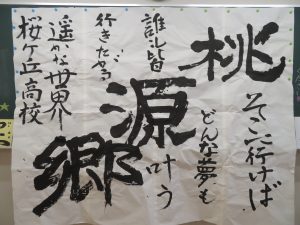 桃源郷
そこに行けば
どんな夢も
叶う
誰も皆
行きたがる
遥かな世界
桜ケ丘高校